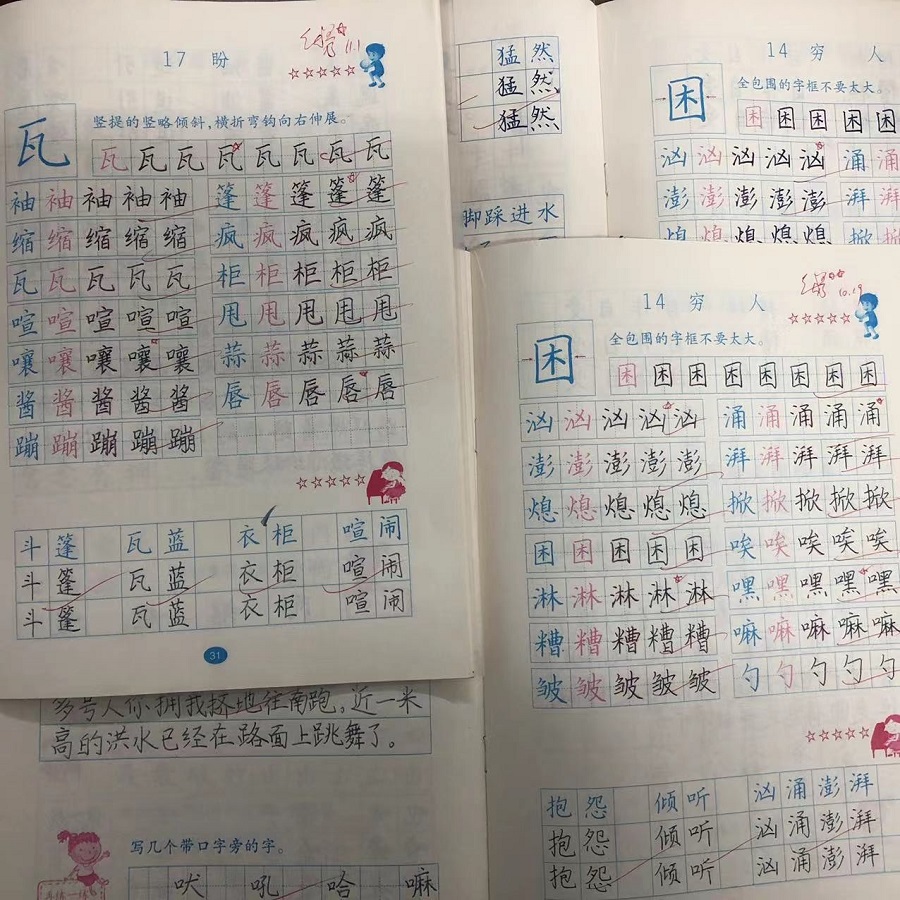 17 盼
11.1
竖提的竖略倾斜，横折弯钩向右伸展。
瓦 瓦 瓦 瓦 瓦 瓦 瓦 瓦 瓦
袖 袖 袖 袖 袖 篷 篷 篷 篷 篷
缩 缩 缩 缩 缩 疯 疯 疯 疯 疯
瓦 瓦 瓦 瓦 瓦 柜 柜 柜 柜 柜
喧 喧 喧 喧 喧 甩 甩 甩 甩 甩
嚷 嚷 嚷 嚷 嚷 蒜 蒜 蒜 蒜 蒜
酱 酱 酱 酱 酱 唇 唇 唇 唇 唇
蹦 蹦 蹦 蹦 蹦
斗篷 瓦蓝 衣柜 喧闹
斗篷 瓦蓝 衣柜 喧闹
斗篷 瓦蓝 衣柜 喧闹
31
猛然
猛然
猛然
脚踩进水
14 穷 人
全包围的字框不要太大。
困 困 困 困 困 困
汹 汹 汹 汹 汹 涌 涌
澎 澎 澎 澎 澎 湃 湃
熄 熄 熄 熄 熄 掀 掀
14 穷 人
10.19
全包围的字框不要太大。
困 困 困 困 困 困 困 困 困
汹 汹 汹 汹 汹 涌 涌 涌 涌 涌
澎 澎 澎 澎 澎 湃 湃 湃 湃 湃
熄 熄 熄 熄 熄 掀 掀 掀 掀 掀
困 困 困 困 困 唉 唉 唉 唉 唉
淋 淋 淋 淋 淋 嘿 嘿 嘿 嘿 嘿
糟 糟 糟 糟 糟 嘛 嘛 嘛 嘛 嘛
皱 皱 皱 皱 皱 勺 勺 勺 勺 勺
抱怨 倾听 汹涌澎湃
抱怨 倾听 汹涌澎湃
抱怨 倾听 汹涌澎湃
多号人你拥我挤地往南跑。近一米
高的洪水已经在路面上跳舞了。
写几个带口字旁的字。
吠 吼 哈 嘛